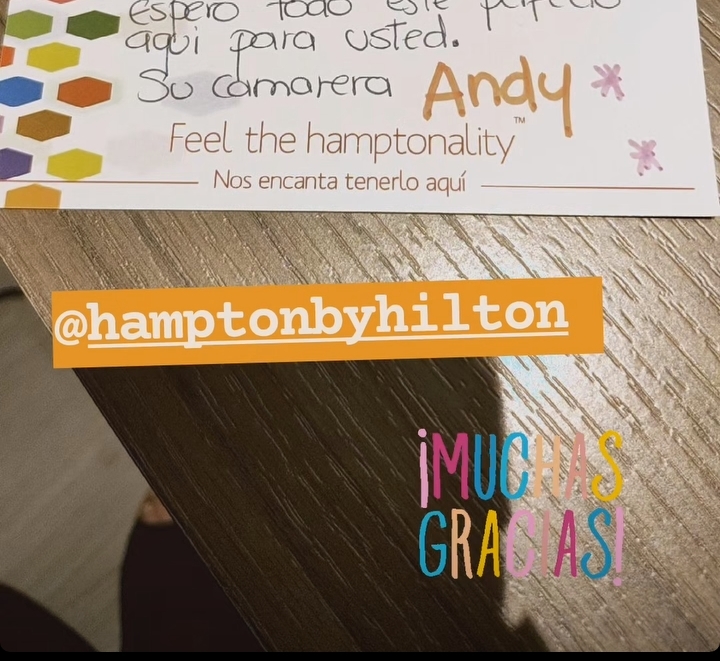 espero todo esté perfecto
aqui para usted.
Su camarera Andy
Feel the hamptonality™
Nos encanta tenerlo aquí
@hamptonbyhilton
¡MUCHAS
GRACIAS!